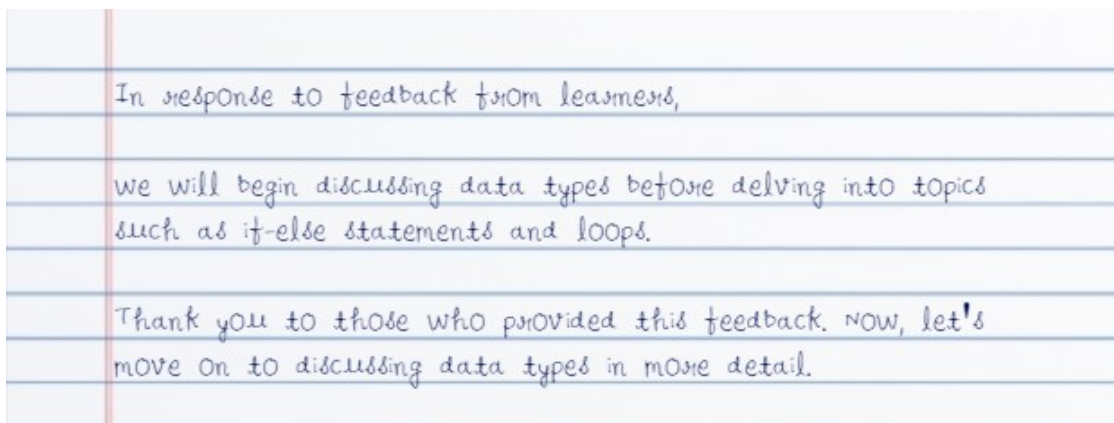 In response to feedback from learners,
we will begin discussing data types before delving into topics
such as if-else statements and loops.
Thank you to those who provided this feedback. Now, let's
move on to discussing data types in more detail.